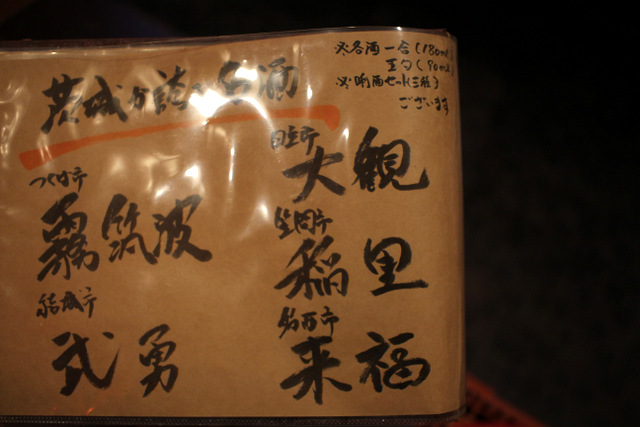 ※各酒 一合(180ml)
五勺(90ml)
※唎酒セット三種も
ございます
茨城が誇る名酒
日立市
大観
笠間市
稲里
筑西市
来福
つくば市
霧筑波
結城市
武勇